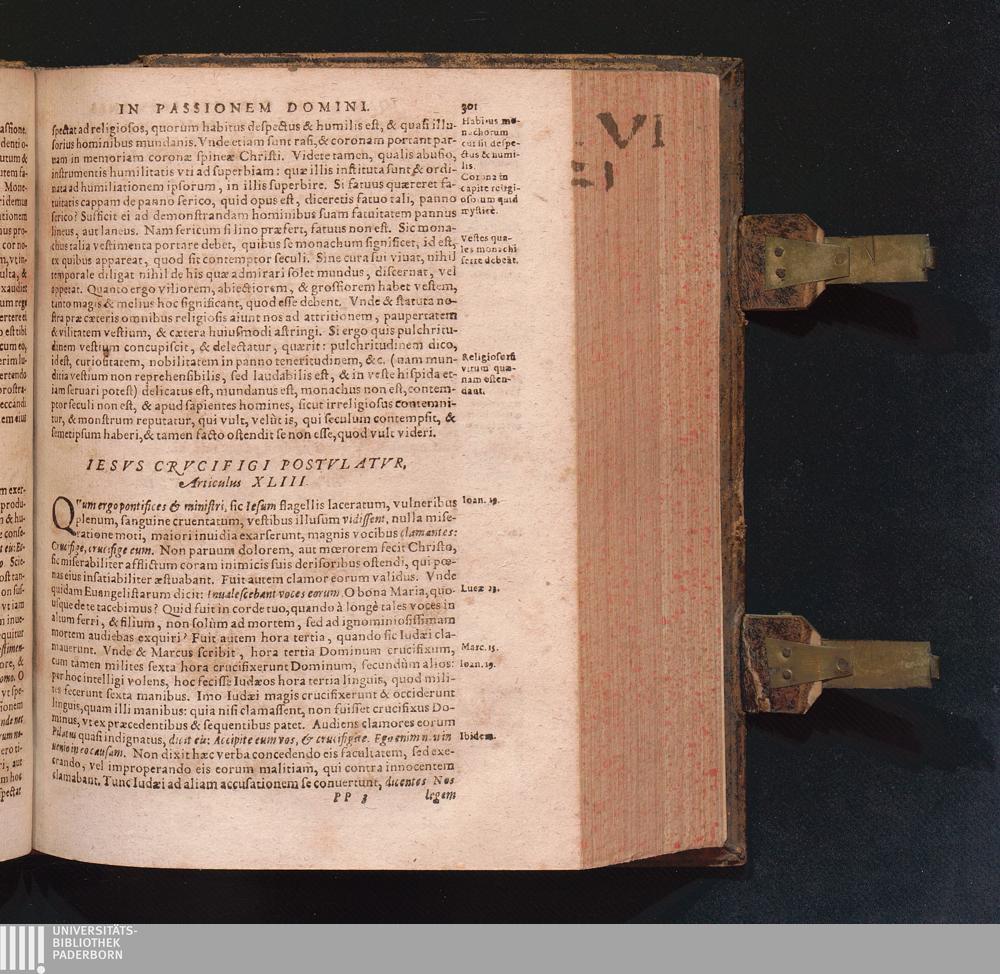 IN PASSIONEM DOMINI. 301
spectat ad religiosos, quorum habitus despectus & humilis est, & quasi illu-
sorius hominibus mundanis. Vnde etiam sunt rasi, & coronam portant par-
uam in memoriam coronæ spineæ Christi. Videte tamen, qualis abusio,
instrumentis humilitatis vti ad superbiam: quæ illis instituta sunt & ordi-
nata ad humiliationem ipsorum, in illis superbire. Si fatuus quæreret fa-
tuitatis cappam de panno serico, quid opus est, diceretis fatuo tali, panno
serico? Sufficit ei ad demonstrandam hominibus suam fatuitatem pannus
lineus, aut laneus. Nam sericum si lino præfert, fatuus non est. Sic mona-
chus talia vestimenta portare debet, quibus se monachum significet, id est,
ex quibus appareat, quod sit contemptor seculi. Sine cura sui viuat, nihil
temporale diligat nihil de his quæ admirari solet mundus, discernat, vel
appetat. Quanto ergo viliorem, abiectiorem, & grossiorem habet vestem,
tanto magis & melius hoc significant, quod esse debent. Vnde & statuta no-
stra præ cæteris omnibus religiosis aiunt nos ad attritionem, paupertatem
& vilitatem vestium, & cætera huiusmodi astringi. Si ergo quis pulchritu-
dinem vestium concupiscit, & delectatur, quærit: pulchritudinem dico,
id est, curiositatem, nobilitatem in panno teneritudinem, &c. (nam mun-
ditia vestium non reprehensibilis, sed laudabilis est, & in veste hispida et-
iam seruari potest) delicatus est, mundanus est, monachus non est, contem-
ptor seculi non est, & apud sapientes homines, sicut irreligiosus contemni-
tur, & monstrum reputatur, qui vult, velut is, qui seculum contempsit, &
semetipsum haberi, & tamen facto ostendit se non esse, quod vult videri.
Habitus mo-
nachorum
cur sit despe-
ctus & humi-
lis.
Corona in
capite religi-
osorum quid
mystice.
Vestes qua-
les monachi
ferre debeāt.
Religiosorū
vitium quæ-
nam osten-
dant.
IESVS CRVCIFIGI POSTVLATVR,
Articulus XLIII.
QVum ergo pontifices & ministri, sic Iesum flagellis laceratum, vulneribus
plenum, sanguine cruentatum, vestibus illusum vidissent, nulla mise-
ratione moti, maiori inuidia exarserunt, magnis vocibus clamantes:
Crucifige, crucifige eum. Non paruum dolorem, aut mœrorem fecit Christo,
sic miserabiliter afflictum coram inimicis suis derisoribus ostendi, qui pœ-
nas eius insatiabiliter æstuabant. Fuit autem clamor eorum validus. Vnde
quidam Euangelistarum dicit: Inualescebant voces eorum. O bona Maria, quo-
usque de te tacebimus? Quid fuit in corde tuo, quando à longè tales voces in
altum ferri, & filium, non solùm ad mortem, sed ad ignominiosissimam
mortem audiebas exquiri? Fuit autem hora tertia, quando sic Iudæi cla-
mauerunt. Vnde & Marcus scribit, hora tertia Dominum crucifixum,
cum tamen milites sexta hora crucifixerunt Dominum, secundùm alios:
per hoc intelligi volens, hoc fecisse Iudæos hora tertia linguis, quod mili-
tes fecerunt sexta manibus. Imo Iudæi magis crucifixerunt & occiderunt
linguis, quam illi manibus: quia nisi clamassent, non fuisset crucifixus Do-
minus, vt ex præcedentibus & sequentibus patet. Audiens clamores eorum
Pilatus quasi indignatus, dicit eis: Accipite eum vos, & crucifigite. Ego enim nō in
uenio in eo causam. Non dixit hæc verba concedendo eis facultatem, sed exe-
crando, vel improperando eis eorum malitiam, qui contra innocentem
clamabant. Tunc Iudæi ad aliam accusationem se conuertunt, dicentes Nos
PP 3 legem
Ioan. 19.
Lucæ 23.
Marc. 15.
Ioan. 19.
Ibidem.
VI
UNIVERSITÄTS-
BIBLIOTHEK
PADERBORN